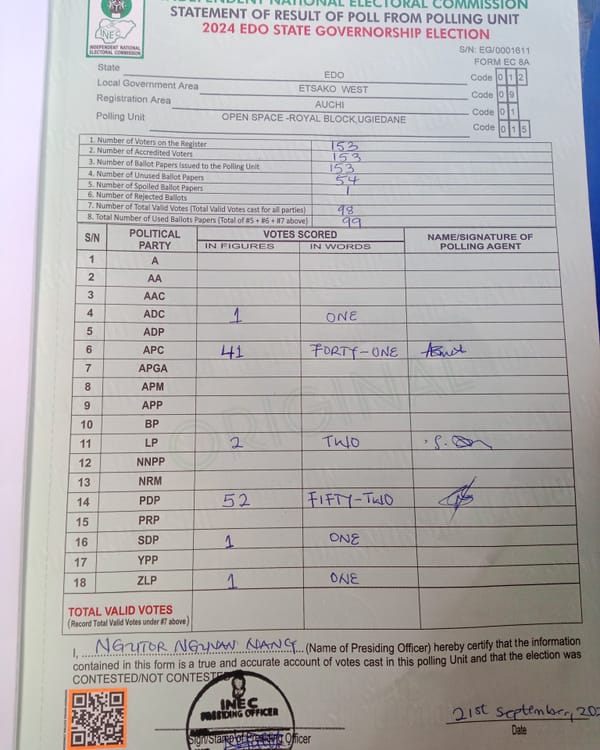 INDEPENDENT NATIONAL ELECTORAL COMMISSION
STATEMENT OF RESULT OF POLL FROM POLLING UNIT
2024 EDO STATE GOVERNORSHIP ELECTION
INEC
INDEPENDENT NATIONAL ELECTORAL COMMISSION
S/N: EG/0001611
FORM EC 8A
State EDO Code 0 1 2
Local Government Area ETSAKO WEST Code 0 9
Registration Area AUCHI Code 0 1
Polling Unit OPEN SPACE -ROYAL BLOCK,UGIEDANE Code 0 1 5
1. Number of Voters on the Register 153
2. Number of Accredited Voters 153
3. Number of Ballot Papers Issued to the Polling Unit 153
4. Number of Unused Ballot Papers 54
5. Number of Spoiled Ballot Papers 1
6. Number of Rejected Ballots
7. Number of Total Valid Votes (Total Valid Votes cast for all parties) 98
8. Total Number of Used Ballots Papers (Total of #5 + #6 + #7 above) 99
S/N POLITICAL PARTY VOTES SCORED NAME/SIGNATURE OF POLLING AGENT
IN FIGURES IN WORDS
1 A
2 AA
3 AAC
4 ADC 1 ONE
5 ADP
6 APC 41 FORTY-ONE
7 APGA
8 APM
9 APP
10 BP
11 LP 2 TWO
12 NNPP
13 NRM
14 PDP 52 FIFTY-TWO
15 PRP
16 SDP 1 ONE
17 YPP
18 ZLP 1 ONE
ORIGINAL
TOTAL VALID VOTES
(Record Total Valid Votes under #7 above)
I, NGUTOR NGUNAN NANCY (Name of Presiding Officer) hereby certify that the information
contained in this form is a true and accurate account of votes cast in this polling Unit and that the election was
CONTESTED/NOT CONTESTED
INEC
PRESIDING OFFICER
Sign/Stamp of Presiding Officer
21st September, 20
Date